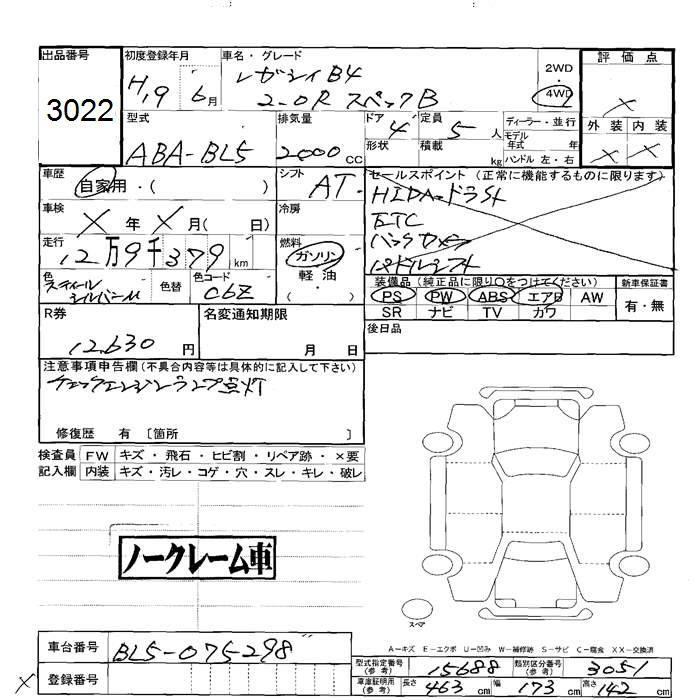 出品番号
3022
初度登録年月
H.19 6月
車名・グレード
レガシィB4
2.0R スペックB
2WD
4WD
評価点
×
外装 内装
× ×
型式
ABA-BL5
排気量
2000 CC
ドア
4
定員
5 人
ディーラー・並行
モデル
年式 年
ハンドル 左・右
形状
積載 kg
車歴
自家用・( )
シフト
AT
セールスポイント (正常に機能するものに限ります)
HIDヘッドライト
ETC
バックカメラ
パドルシフト
車検
× 年 × 月( 日)
冷房
走行
12万9千379 km
燃料
ガソリン
軽油
・( )
色
スティール
シルバーM
色替
色コード
C6Z
装備品 (純正品に限り○をつけてください)
PS PW ABS エアB AW
SR ナビ TV カワ
新車保証書
有・無
R券
12,630 円
名変通知期限
月 日
後日品
注意事項申告欄 (不具合内容等は具体的に記入して下さい)
チェックエンジンランプ点灯
修復歴 有 〔箇所 〕
検査員 FW キズ・飛石・ヒビ割・リペア跡・×要
記入欄 内装 キズ・汚レ・コゲ・穴・スレ・キレ・破レ
ノークレーム車
スペア
A-キズ E-エクボ U-凹み W-補修跡 S-サビ C-腐食 XX-交換済
車台番号
BL5-075298
登録番号
×
型式指定番号
(参考)
15688
類別区分番号
(参考)
3051
車庫証明用
(参考)
長さ 463 cm 幅 173 cm 高さ 142 cm